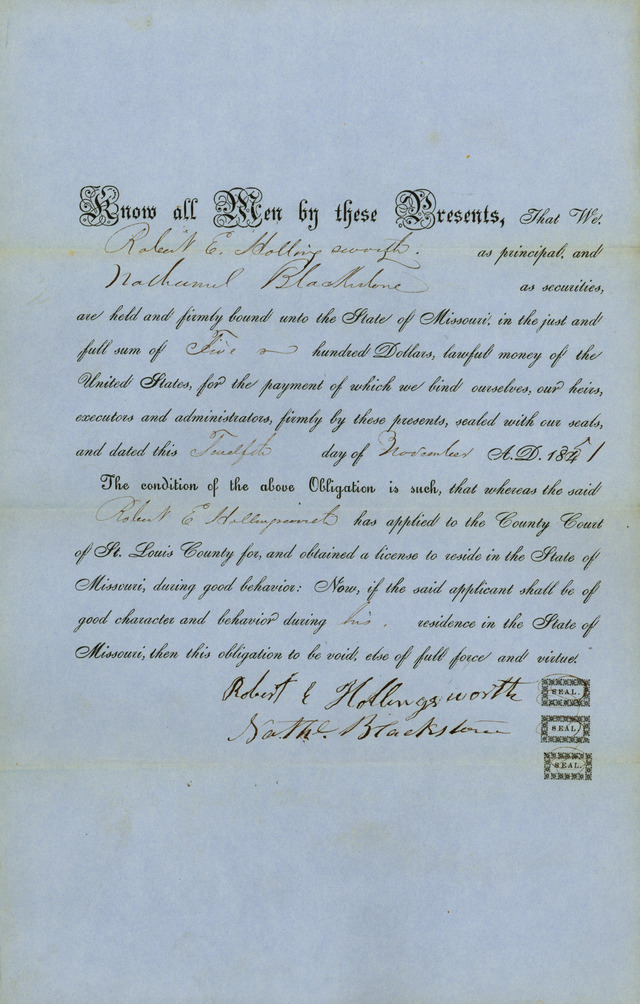 Know all Men by these Presents, That We,
Robert E. Hollingsworth. as principal, and
Nathaniel Blackstone as securities,
are held and firmly bound unto the State of Missouri, in the just and
full sum of Five hundred Dollars, lawful money of the
United States, for the payment of which we bind ourselves, our heirs,
executors and administrators, firmly by these presents, sealed with our seals,
and dated this Twelfth day of November A.D. 1851
The condition of the above Obligation is such, that whereas the said
Robert E Hollingsworth has applied to the County Court
of St. Louis County for, and obtained a license to reside in the State of
Missouri, during good behavior: Now, if the said applicant shall be of
good character and behavior during his. residence in the State of
Missouri, then this obligation to be void, else of full force and virtue.
Robert E Hollingsworth SEAL.
Nathl. Blackstone SEAL.
SEAL.